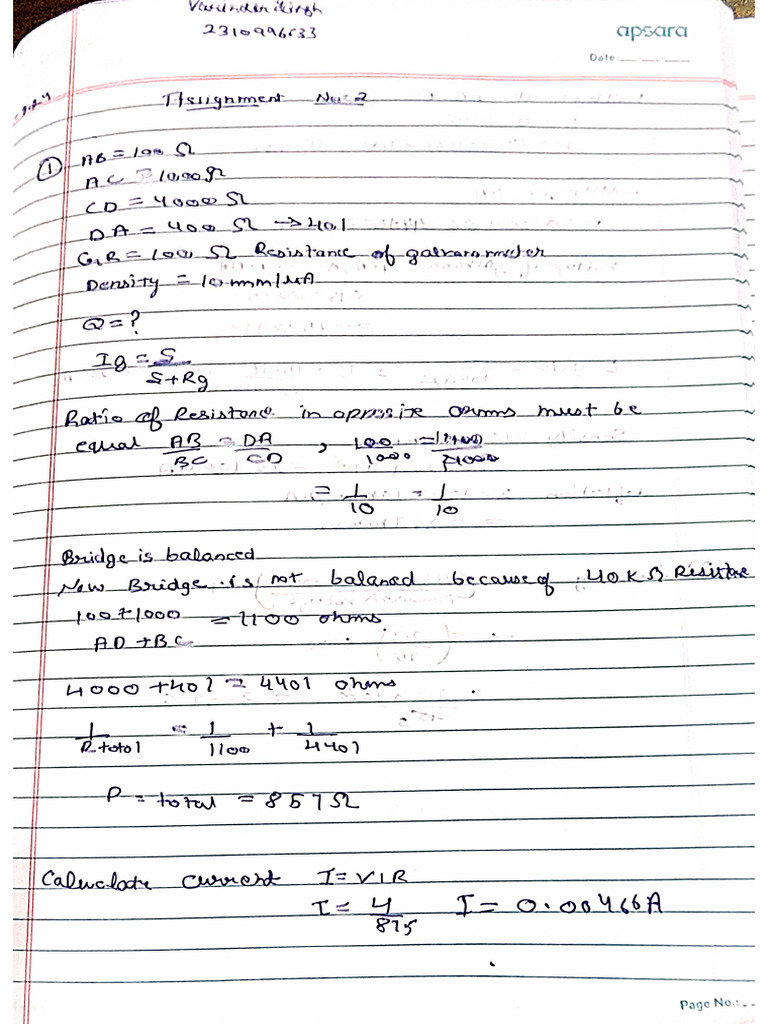 Varinder Singh
2310996633
apsara
Date:
Assignment No 2
① AB = 100 Ω
AC = 1000 Ω
CD = 4000 Ω
DA = 400 Ω → 401
G.R = 100 Ω Resistance of galvanometer
Density = 10 mm/μA
Q = ?
Ig = S
S+Rg
Ratio of Resistance in opposite arms must be
equal AB = DA , 100 = 400
BC CD 1000 4000
= 1 = 1
10 10
Bridge is balanced
New Bridge is not balanced because of 40K Ω Resistance
100+1000 = 1100 ohms
AD + BC
4000 + 401 = 4401 ohms
1 = 1 + 1
R total 1100 4401
P = total = 857 Ω
Calculate current I = V/R
I = 4 I = 0.00466A
875
Page No.: